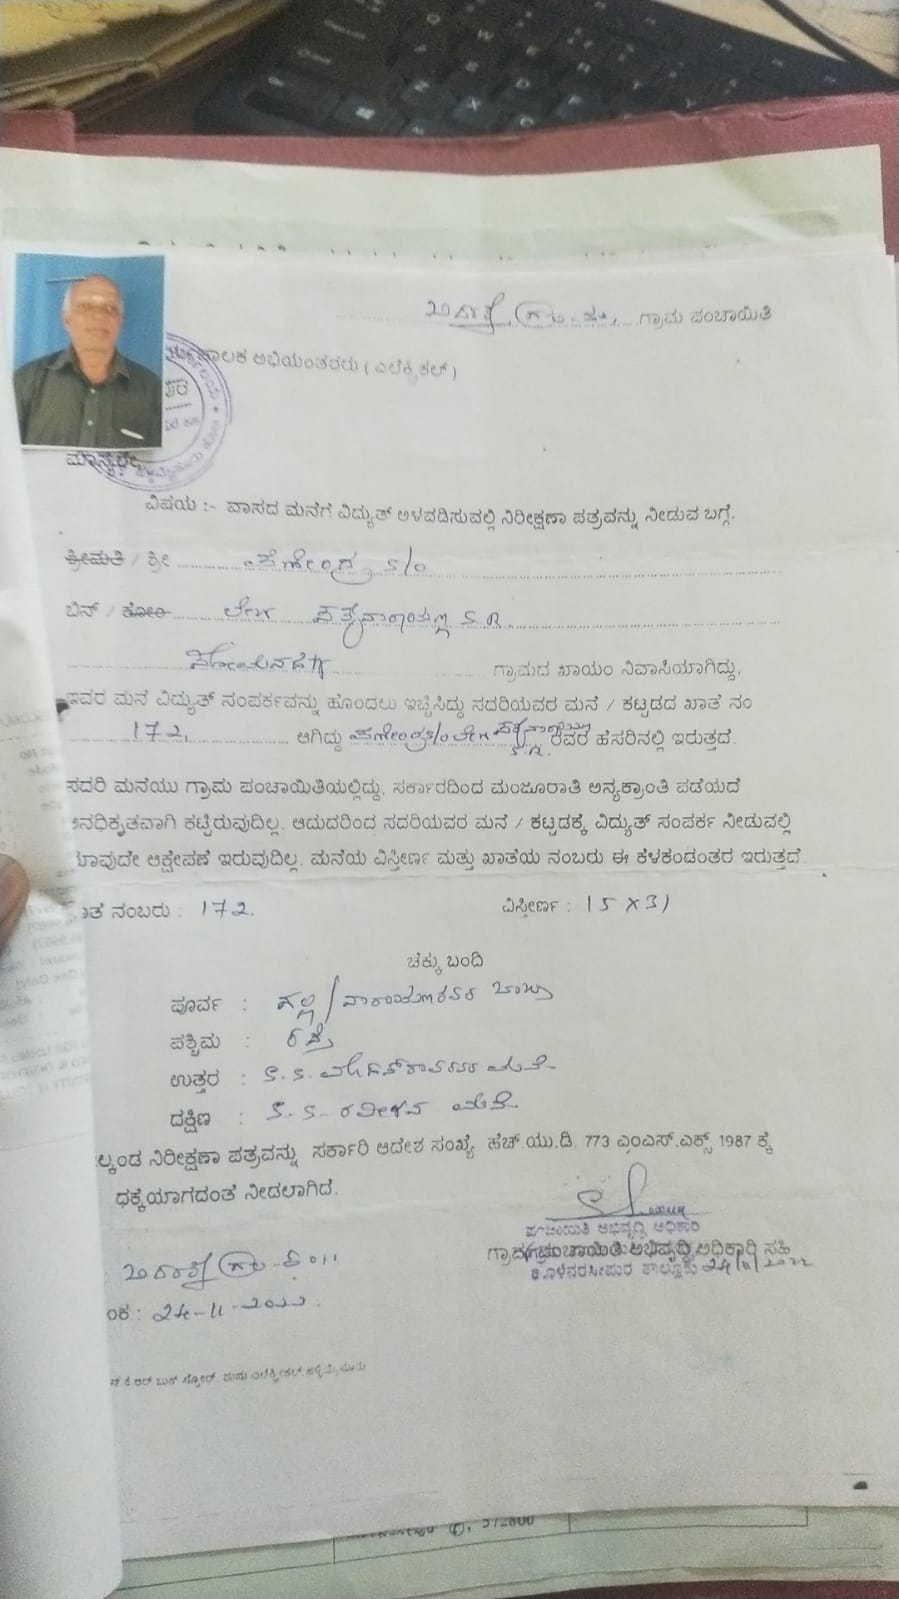 ಗ್ರಾಮ ಪಂಚಾಯಿತಿ
ಪಾಲಕ ಅಭಿಯಂತರರು ( ಎಲೆಕ್ಟ್ರಿಕಲ್ )
ಮಾನ್ಯರೇ,
ವಿಷಯ :- ವಾಸದ ಮನೆಗೆ ವಿದ್ಯುತ್ ಅಳವಡಿಸುವಲ್ಲಿ ನಿರೀಕ್ಷಣಾ ಪತ್ರವನ್ನು ನೀಡುವ ಬಗ್ಗೆ.
ಶ್ರೀಮತಿ / ಶ್ರೀ S/O
ಬಿನ್ / ಕೋಂ ಲೇಟ್ ಸತ್ಯನಾರಾಯಣ S.R.
ಗ್ರಾಮದ ಖಾಯಂ ನಿವಾಸಿಯಾಗಿದ್ದು,
ಇವರ ಮನೆ ವಿದ್ಯುತ್ ಸಂಪರ್ಕವನ್ನು ಹೊಂದಲು ಇಚ್ಚಿಸಿದ್ದು ಸದರಿಯವರ ಮನೆ / ಕಟ್ಟಡದ ಖಾತೆ ನಂ
172, ಆಗಿದ್ದು S/O ಲೇಟ್ ಸತ್ಯನಾರಾಯಣ S.R. ರವರ ಹೆಸರಿನಲ್ಲಿ ಇರುತ್ತದೆ.
ಸದರಿ ಮನೆಯು ಗ್ರಾಮ ಪಂಚಾಯಿತಿಯಲ್ಲಿದ್ದು, ಸರ್ಕಾರದಿಂದ ಮಂಜೂರಾತಿ ಅನ್ಯಕ್ರಾಂತಿ ಪಡೆಯದೆ
ಅನಧಿಕೃತವಾಗಿ ಕಟ್ಟಿರುವುದಿಲ್ಲ. ಆದುದರಿಂದ ಸದರಿಯವರ ಮನೆ / ಕಟ್ಟಡಕ್ಕೆ ವಿದ್ಯುತ್ ಸಂಪರ್ಕ ನೀಡುವಲ್ಲಿ
ಯಾವುದೇ ಆಕ್ಷೇಪಣೆ ಇರುವುದಿಲ್ಲ. ಮನೆಯ ವಿಸ್ತೀರ್ಣ ಮತ್ತು ಖಾತೆಯ ನಂಬರು ಈ ಕೆಳಕಂಡಂತರ ಇರುತ್ತದೆ.
ಾತೆ ನಂಬರು : 172. ವಿಸ್ತೀರ್ಣ : 15 X 31
ಚಕ್ಕು ಬಂದಿ
ಪೂರ್ವ : ಗಲ್ಲಿ / ನಾರಾಯಣರವರ
ಪಶ್ಚಿಮ : ರಸ್ತೆ
ಉತ್ತರ : S. S. ಮನೆ
ದಕ್ಷಿಣ : S. S. ಮನೆ
ಲ್ಕಂಡ ನಿರೀಕ್ಷಣಾ ಪತ್ರವನ್ನು ಸರ್ಕಾರಿ ಆದೇಶ ಸಂಖ್ಯೆ ಹೆಚ್.ಯು.ಡಿ. 773 ಎಂಎಸ್.ಎಕ್ಸ್ 1987 ಕ್ಕೆ
ಧಕ್ಕೆಯಾಗದಂತೆ ನೀಡಲಾಗಿದೆ.
ಪಂಚಾಯಿತಿ ಅಭಿವೃದ್ಧಿ ಅಧಿಕಾರಿ
ಗ್ರಾಮ ಪಂಚಾಯಿತಿ ಅಭಿವೃದ್ಧಿ ಅಧಿಕಾರಿ ಸಹಿ
ಹೊಳೆನರಸೀಪುರ ತಾಲ್ಲೂಕು 24/11/2022
ಂಕ : 24-11-2022.